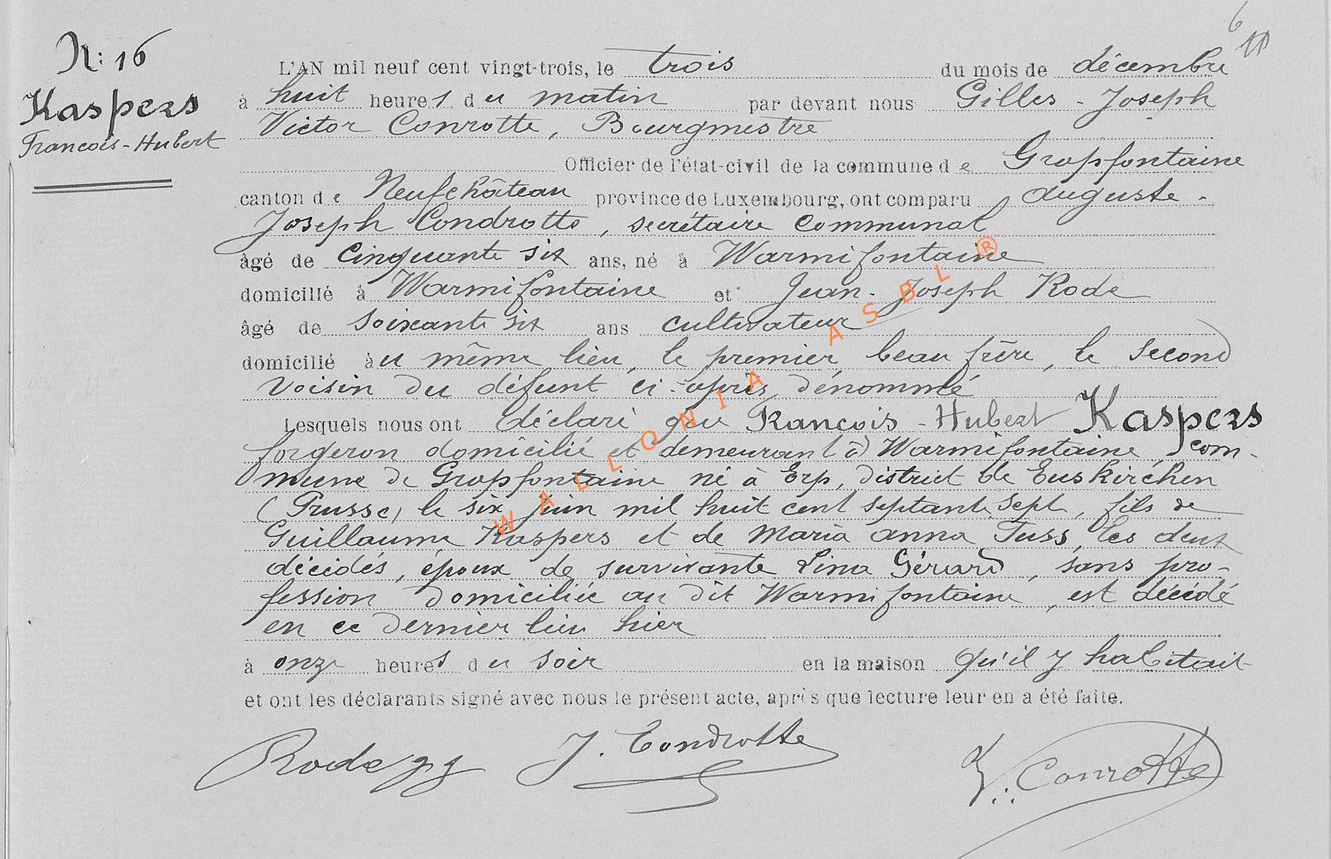 6
11
N: 16
Kaspers
François-Hubert
L'AN mil neuf cent vingt-trois, le trois du mois de décembre
à huit heures du matin par devant nous Gilles-Joseph
Victor Conrotte, Bourgmestre
Officier de l'état-civil de la commune de Grapfontaine
canton de Neufchâteau province de Luxembourg, ont comparu Auguste-
Joseph Condrotte, secrétaire communal
âgé de cinquante six ans, né à Warmifontaine
domicilié à Warmifontaine et Jean-Joseph Rode
âgé de soixante six ans cultivateur
domicilié au même lieu, le premier beau frère, le second
voisin du défunt ci-après dénommé
Lesquels nous ont déclaré que François-Hubert Kaspers
forgeron domicilié et demeurant à Warmifontaine, com-
mune de Grapfontaine né à Erp, district de Euskirchen
(Prusse) le six juin mil huit cent septante sept, fils de
Guillaume Kaspers et de Maria Anna Fuss, les deux
décédés, époux de survivante Lina Gérard, sans pro-
fession domiciliée au dit Warmifontaine, est décédé
en ce dernier lieu hier
à onze heures du soir en la maison qu'il y habitait
et ont les déclarants signé avec nous le présent acte, après que lecture leur en a été faite.
Rode JJ J. Condrotte V. Conrotte
WALLONIA ASBL ®